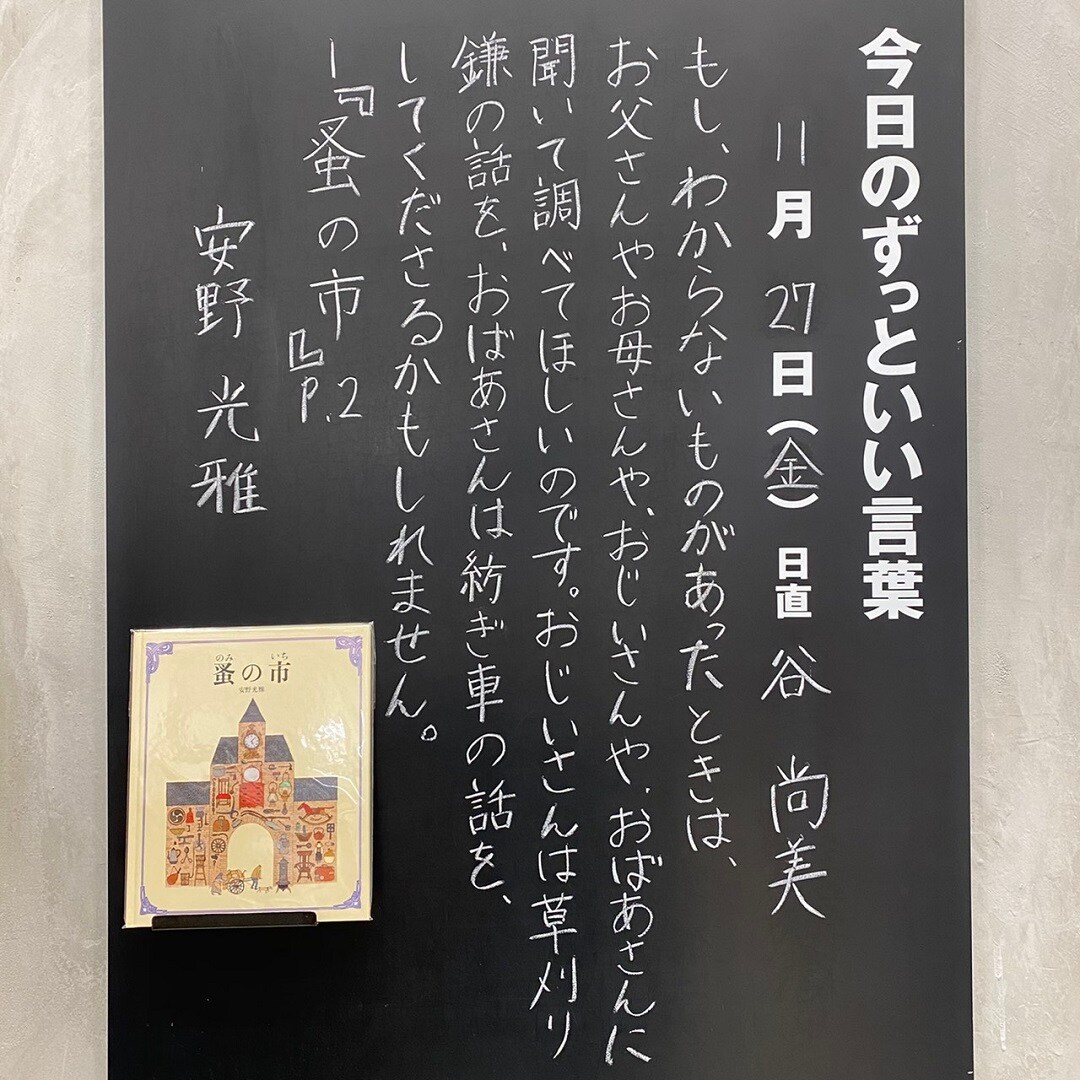 今日のずっといい言葉
11月27日(金) 日直 谷 尚美
もし、わからないものがあったときは、
お父さんやお母さんや、おじいさんや、おばあさんに
聞いて調べてほしいのです。おじいさんは草刈り
鎌の話を、おばあさんは紡ぎ車の話を、
してくださるかもしれません。
―『蚤の市』P.2
安野 光雅
のみ いち
蚤の市
安野光雅